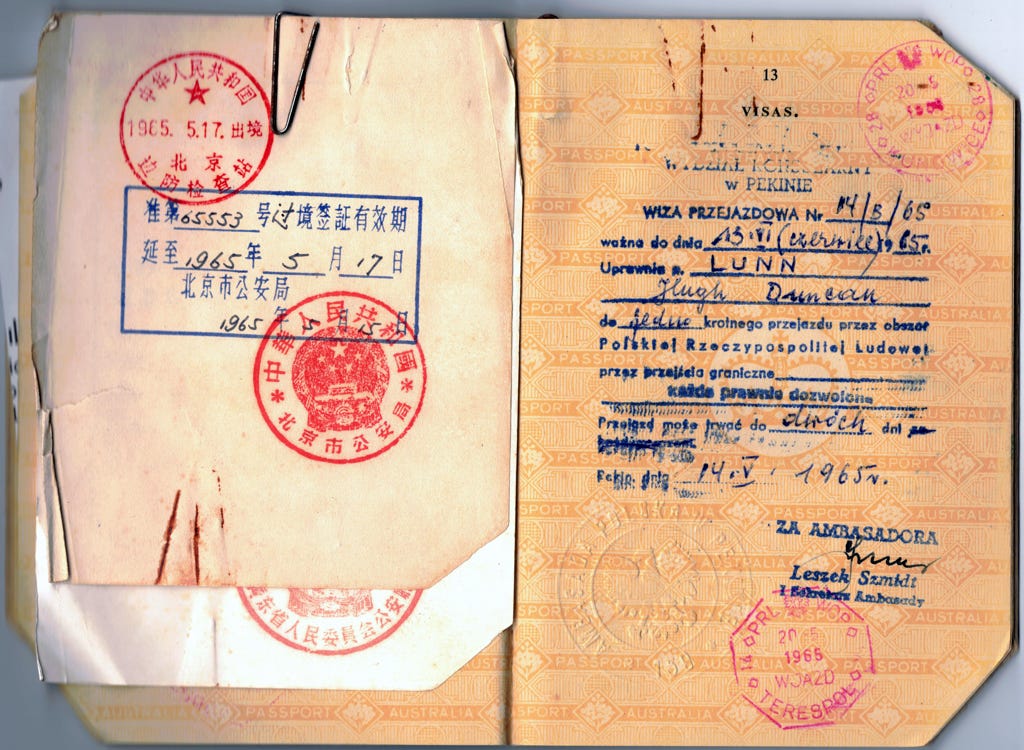 中华人民共和国
1965. 5.17. 出境
北京
边防检查站
准第65553号过境签証有效期
延至1965年5月17日
北京市公安局
1965年5月15日
中華人民共和國
北京市公安局
廣东省人民委員会公安廳
13
VISAS.
WYDZIAŁ KONSULARNY
w PEKINIE
WIZA PRZEJAZDOWA Nr 14/B/65
ważna do dnia 13.VI (czerwiec) 1965r.
Uprawnia p. LUNN
Hugh Duncan
do jedno krotnego przejazdu przez obszar
Polskiej Rzeczypospolitej Ludowej
przez przejścia graniczne
każde prawnie dozwolone
Przejazd może trwać do dwóch dni
Pekin, dnia 14.V. 1965r.
ZA AMBASADORA
Leszek Szmidt
I Sekretarz Ambasady
PRL WOP
28
20-5
PRL WOP
16
20-5
1965
WJAZD
TERESPOL
PASSPORT AUSTRALIA